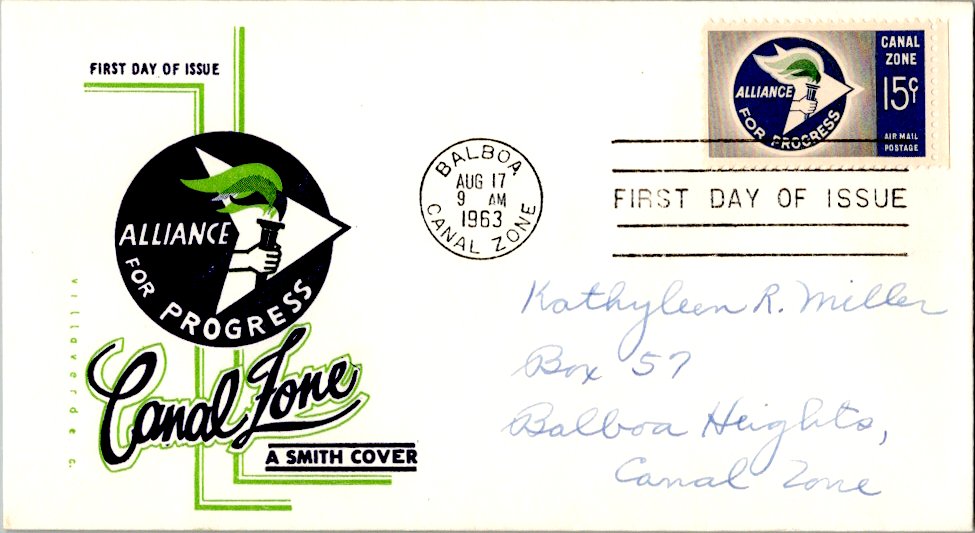 FIRST DAY OF ISSUE
ALLIANCE
FOR PROGRESS
villaverde G.
Canal Zone
A SMITH COVER
BALBOA
AUG 17
9 AM
1963
CANAL ZONE
CANAL
ZONE
15¢
AIR MAIL
POSTAGE
ALLIANCE
FOR PROGRESS
FIRST DAY OF ISSUE
Kathyleen R. Miller
Box 57
Balboa Heights,
Canal Zone